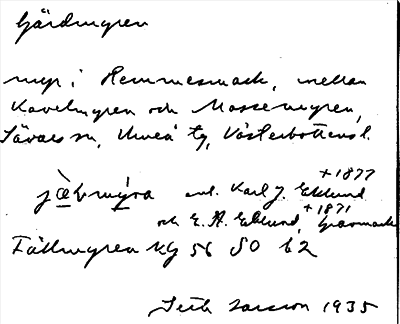 Gärdmyren
myr i Hemmesmark, mellan
Kavelmyren och Mossamyren,
Sävars sn, Umeå tg, Västerbottens l.
* 1877
enl. Karl J. Eklund
* 1871
och E. A. Eklund, Gravmark
Fällmyren kg 56 SO b2
Seth Larsson 1935